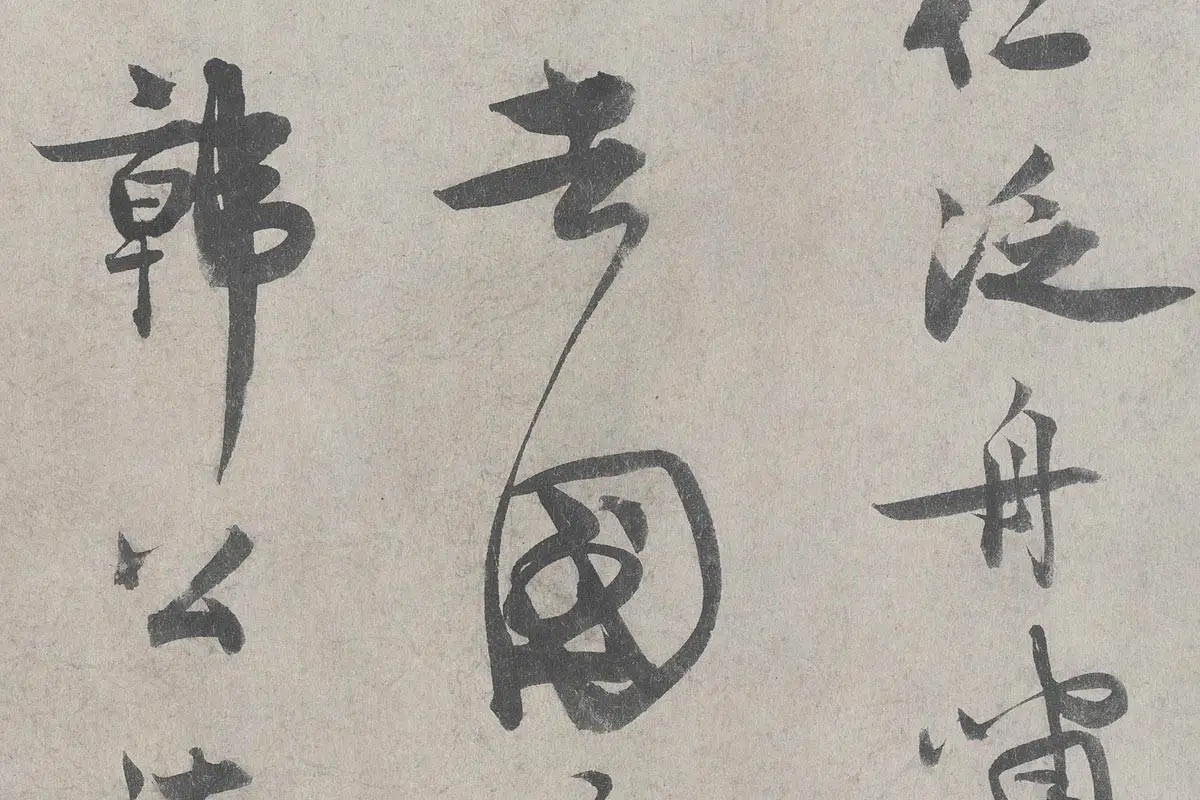 泛舟
去國
韓公